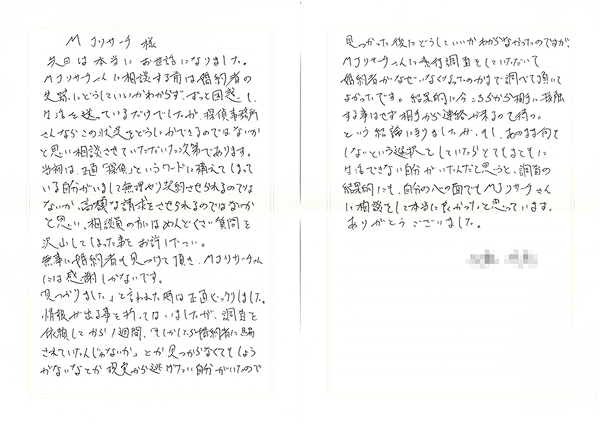 MJリサーチ 様
先日は本当にお世話になりました。
MJリサーチさんに相談する前は婚約者の
失踪にどうしていいかわからず、ずっと困惑し、
生活を送っているだけでしたが、探偵事務所
さんならこの状況をどうにかできるのではないか
と思い相談させていただいた次第であります。
当初は、正直「探偵」というワードに構えてしまって
いる自分がいまして無理やり契約させられるのでは
ないか、高額な請求をさせられるのではないか
と思い、相談員の方にはめんどくさい質問を
沢山してしまった事をお許し下さい。
無事に婚約者も見つけて頂き、MJリサーチさん
には感謝しかないです。
「見つかりました」と言われた時は正直ビックリしました。
情報が出る事を祈ってはいましたが、調査を
依頼してから1週間、もしかしたら婚約者に騙
されていたんじゃないか、とか見つからなくてもしょう
がないなとか現実から逃げたい自分がいたので
見つかった後にどうしていいかわからなかったのですが、
MJリサーチさんに素行調査をしていただいて
婚約者がなぜいなくなったのかまで調べて頂いて
よかったです。結果的に今こちらから相手に接触
する事はせず相手から連絡が来るのを待つ。
という結論に至りましたが、もし、あのまま何も
しないという選択をしていたらとてもまともに
生活できない自分がいたんだと思うと、調査の
結果的にも、自分の心の面でもMJリサーチさん
に相談をして本当に良かったと思っています。
ありがとうございました。